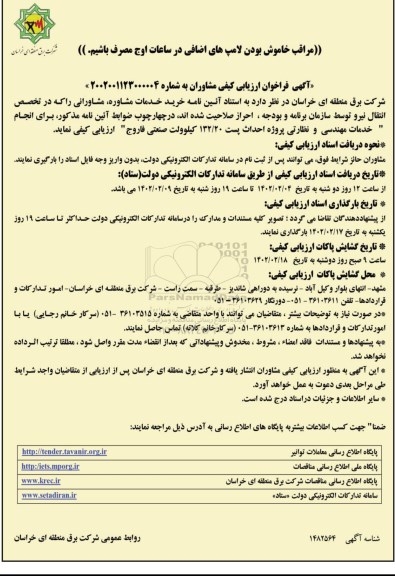 شرکت برق منطقه ای خراسان
((مراقب خاموش بودن لامپ های اضافی در ساعات اوج مصرف باشیم. ))
«آگهی فراخوان ارزیابی کیفی مشاوران به شماره ۲۰۰۲۰۰۱۱۲۳۰۰۰۰۰۴»
شرکت برق منطقه ای خراسان در نظر دارد به استناد آئین نامه خرید خدمات مشاوره، مشاورانی راکه در تخصص
انتقال نیرو توسط سازمان برنامه و بودجه ، احراز صلاحیت شده اند، درچهارچوب ضوابط آئین نامه مذکور، برای انجام
" خدمات مهندسی و نظارتی پروژه احداث پست ۱۳۲/۲۰ کیلوولت صنعتی فاروج" ارزیابی کیفی نماید.
*نحوه دریافت اسناد ارزیابی کیفی:
مشاوران حائز شرایط فوق، می توانند پس از ثبت نام در سامانه تدارکات الکترونیکی دولت، بدون واریز وجه فایل اسناد را بارگیری نمایند.
*تاریخ دریافت اسناد ارزیابی کیفی از طریق سامانه تدارکات الکترونیکی دولت(ستاد):
از ساعت ۱۲ روز دو شنبه به تاریخ ۱۴۰۲/۰۲/۰۴ تا ساعت ۱۹ روز شنبه به تاریخ ۱۴۰۲/۰۲/۰۹ می باشد.
* تاریخ بارگذاری اسناد ارزیابی کیفی:
از پیشنهاددهندگان تقاضا می گردد : تصویر کلیه مستندات و مدارک را درسامانه تدارکات الکترونیکی دولت حداکثر تا ساعت ۱۹ روز
یکشنبه به تاریخ ۱۴۰۲/۰۲/۱۷ بارگذاری نمایند.
* تاریخ گشایش پاکات ارزیابی کیفی:
ساعت ۹ صبح روز دوشنبه به تاریخ ۱۴۰۲/۰۲/۱۸
* محل گشایش پاکات ارزیابی کیفی:
مشهد- انتهای بلوار وکیل آباد - نرسیده به دوراهی شاندیز - طرقبه - سمت راست - شرکت برق منطقه ای خراسان- امور تدارکات و
قراردادها- تلفن ۳۶۱۰۳۶۱۱ - ۰۵۱- دورنگار ۳۶۱۰۳۶۲۹-۰۵۱
*در صورت نیاز به توضیحات بیشتر ، متقاضیان می توانند با واحد متقاضی به شماره ۳۶۱۰۳۵۱۵ - ۰۵۱ (سرکار خانم رجایی) یا با
امورتدارکات و قراردادها به شماره ۳۶۱۰۳۶۱۳-۰۵۱ (سرکارخانم کلاته) تماس حاصل نمایند.
*به پیشنهادها و مستندات فاقد امضاء ، مشروط ، مخدوش وپیشنهاداتی که بعداز انقضاء مدت مقرر واصل شود ، مطلقا ترتیب اثرداده
نخواهد شد.
* این آگهی به منظور ارزیابی کیفی مشاوران انتشار یافته و شرکت برق منطقه ای خراسان پس از ارزیابی از متقاضیان واجد شرایط
طی مراحل بعدی دعوت به عمل خواهد آورد.
* سایر اطلاعات و جزئیات دراسناد درج شده است.
ضمنا" جهت کسب اطلاعات بیشتربه پایگاه های اطلاع رسانی به آدرس ذیل مراجعه نمایند:
پایگاه اطلاع رسانی معاملات توانیر http://tender.tavanir.org.ir
پایگاه ملی اطلاع رسانی مناقصات http://iets.mporg.ir
پایگاه اطلاع رسانی مناقصات شرکت برق منطقه ای خراسان www.krec.ir
سامانه تدارکات الکترونیکی دولت «ستاد» www.setadiran.ir
شناسه آگهی ۱۴۸۲۵۶۴ روابط عمومی شرکت برق منطقه ای خراسان